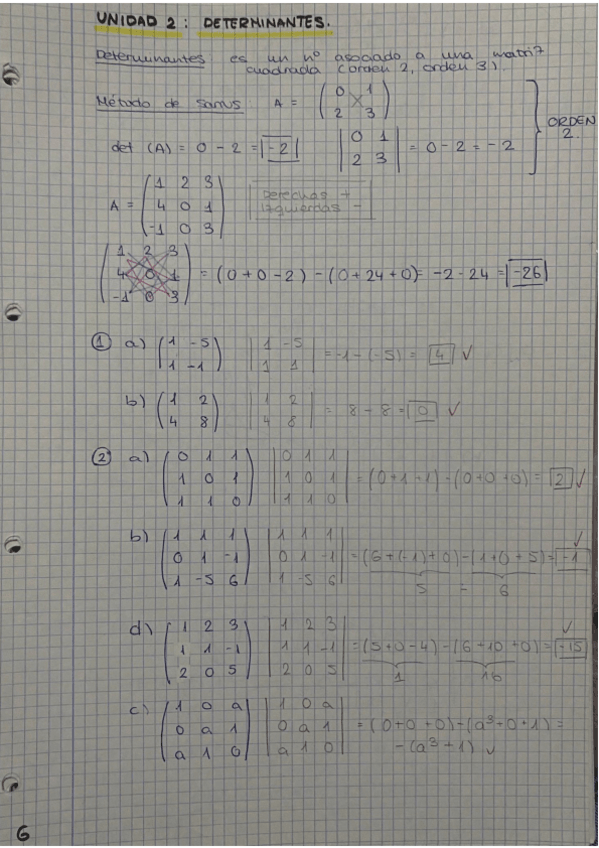 UNIDAD 2: DETERMINANTES.
Determinantes es un nº asociado a una matriz
cuadrada (orden 2, orden 3).
Método de Sarrus A = ( 0 1
2 3 )
det (A) = 0 - 2 = -2 | 0 1
2 3 | = 0 - 2 = -2
ORDEN
2.
A = ( 1 2 3
4 0 1
-1 0 3 )
Derechas +
Izquierdas -
( 1 2 3
4 0 1
-1 0 3 ) = (0+0-2) - (0+24+0) = -2-24 = -26
① a) ( 1 -5
1 -1 ) | 1 -5
1 1 | = -1-(-5) = 4 ✓
b) ( 1 2
4 8 ) | 1 2
4 8 | = 8 - 8 = 0 ✓
② a) ( 0 1 1
1 0 1
1 1 0 ) | 0 1 1
1 0 1
1 1 0 | = (0+1+1) - (0+0+0) = 2 ✓
b) ( 1 1 1
0 1 -1
1 -5 6 ) | 1 1 1
0 1 -1
1 -5 6 | = (6+(-1)+0)-(1+0+5) = -1 ✓
5 - 6
d) ( 1 2 3
1 1 -1
2 0 5 ) | 1 2 3
1 1 -1
2 0 5 | = (5+0-4)-(6+10+0) = -15 ✓
1 16
c) ( 1 0 a
0 a 1
a 1 0 ) | 1 0 a
0 a 1
a 1 0 | = (0+0+0)-(a³+0+1) =
-(a³+1) ✓
6